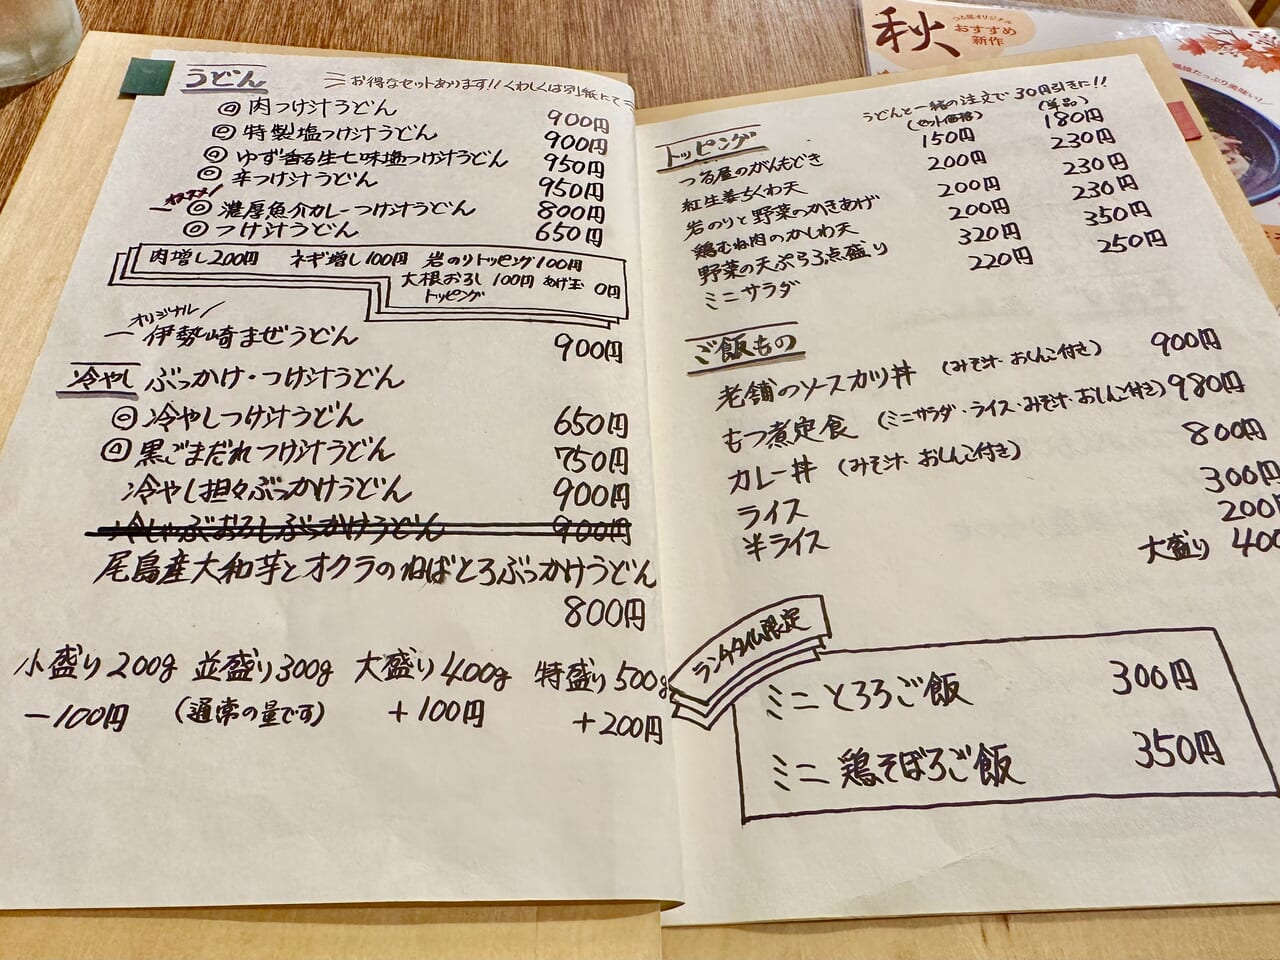 うどん
お得なセットあります!!くわしくは別紙にて
肉つけ汁うどん 900円
特製塩つけ汁うどん 900円
ゆず香る生七味塩つけ汁うどん 950円
辛つけ汁うどん 950円
オススメ!
濃厚魚介カレーつけ汁うどん 800円
つけ汁うどん 650円
肉増し200円 ネギ増し100円 岩のりトッピング100円
大根おろしトッピング 100円 あげ玉 0円
オリジナル
伊勢崎まぜうどん 900円
冷やし ぶっかけ・つけ汁うどん
冷やしつけ汁うどん 650円
黒ごまだれつけ汁うどん 750円
冷やし担々ぶっかけうどん 900円
冷しゃぶおろしぶっかけうどん 900円
尾島産大和芋とオクラのねばとろぶっかけうどん
800円
小盛り200g 並盛り300g 大盛り400g 特盛り500g
-100円 (通常の量です) +100円 +200円
秋
つる屋オリジナル
おすすめ
新作
うどんと一緒の注文で30円引きに!!
トッピング (セット価格) (単品)
つる屋のがんもどき 150円 180円
紅生姜ちくわ天 200円 230円
岩のりと野菜のかきあげ 200円 230円
鶏むね肉のかしわ天 200円 230円
野菜の天ぷら3点盛り 320円 350円
ミニサラダ 220円 250円
ご飯もの
老舗のソースカツ丼 (みそ汁・おしんこ付き) 900円
もつ煮定食 (ミニサラダ・ライス・みそ汁・おしんこ付き) 980円
カレー丼 (みそ汁・おしんこ付き) 800円
ライス 300円
半ライス 200円
大盛り 400
ランチタイム限定
ミニとろろご飯 300円
ミニ鶏そぼろご飯 350円